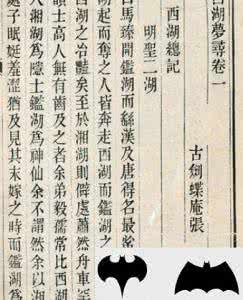 西湖夢尋卷一
古劍蝶庵張
西湖總記
明聖二湖
自馬臻開鑑湖而繇漢及唐得名最
湖起而奪之人皆奔走西湖而鑑湖之
西湖之冶豔矣至於湘湖則僻處蕭然舟車
韻士高人無有齒及之者余弟毅孺常比西湖
人湘湖爲隱士鑑湖爲神仙余不謂然余以湘
處子眠娗羞澀猶及見其未嫁之時而鑑湖爲